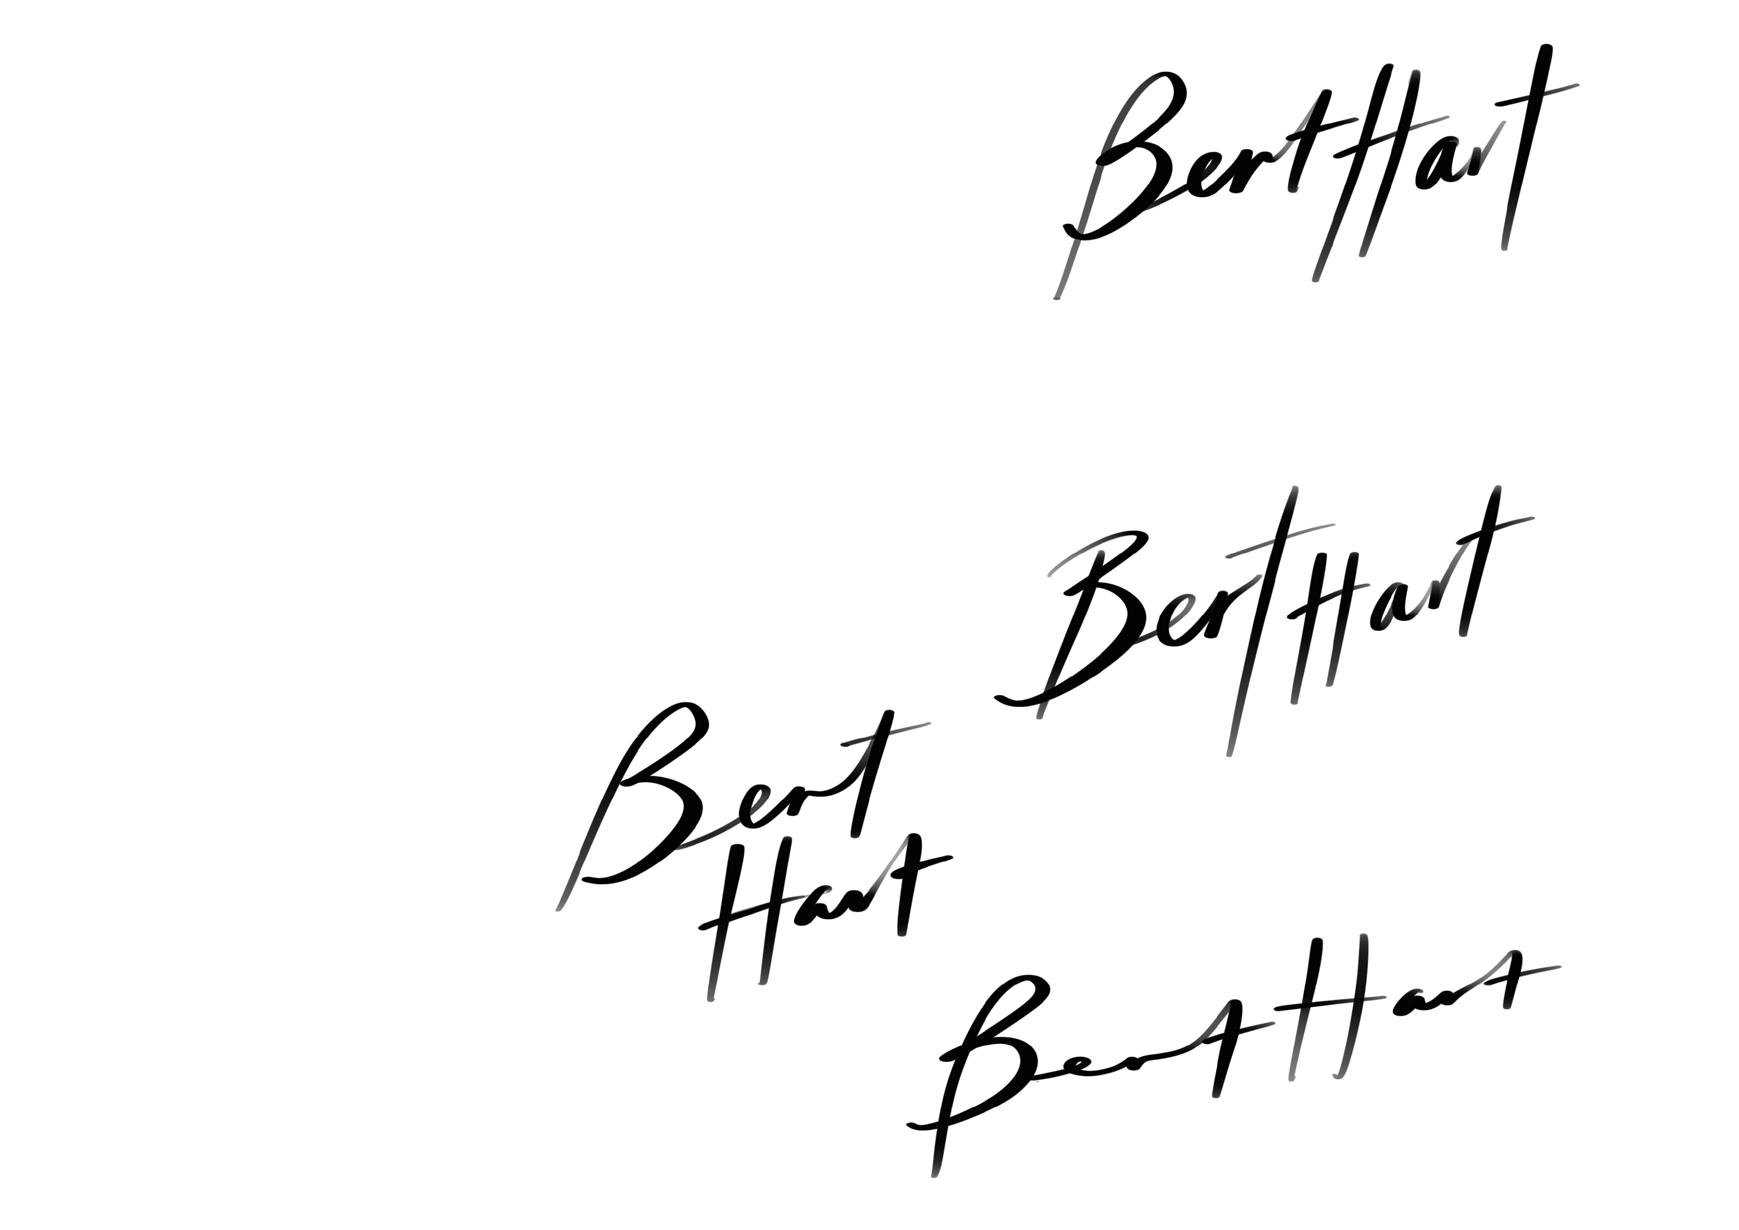 Bert Hart
Bert Hart
Bert
Hart
Bert Hart